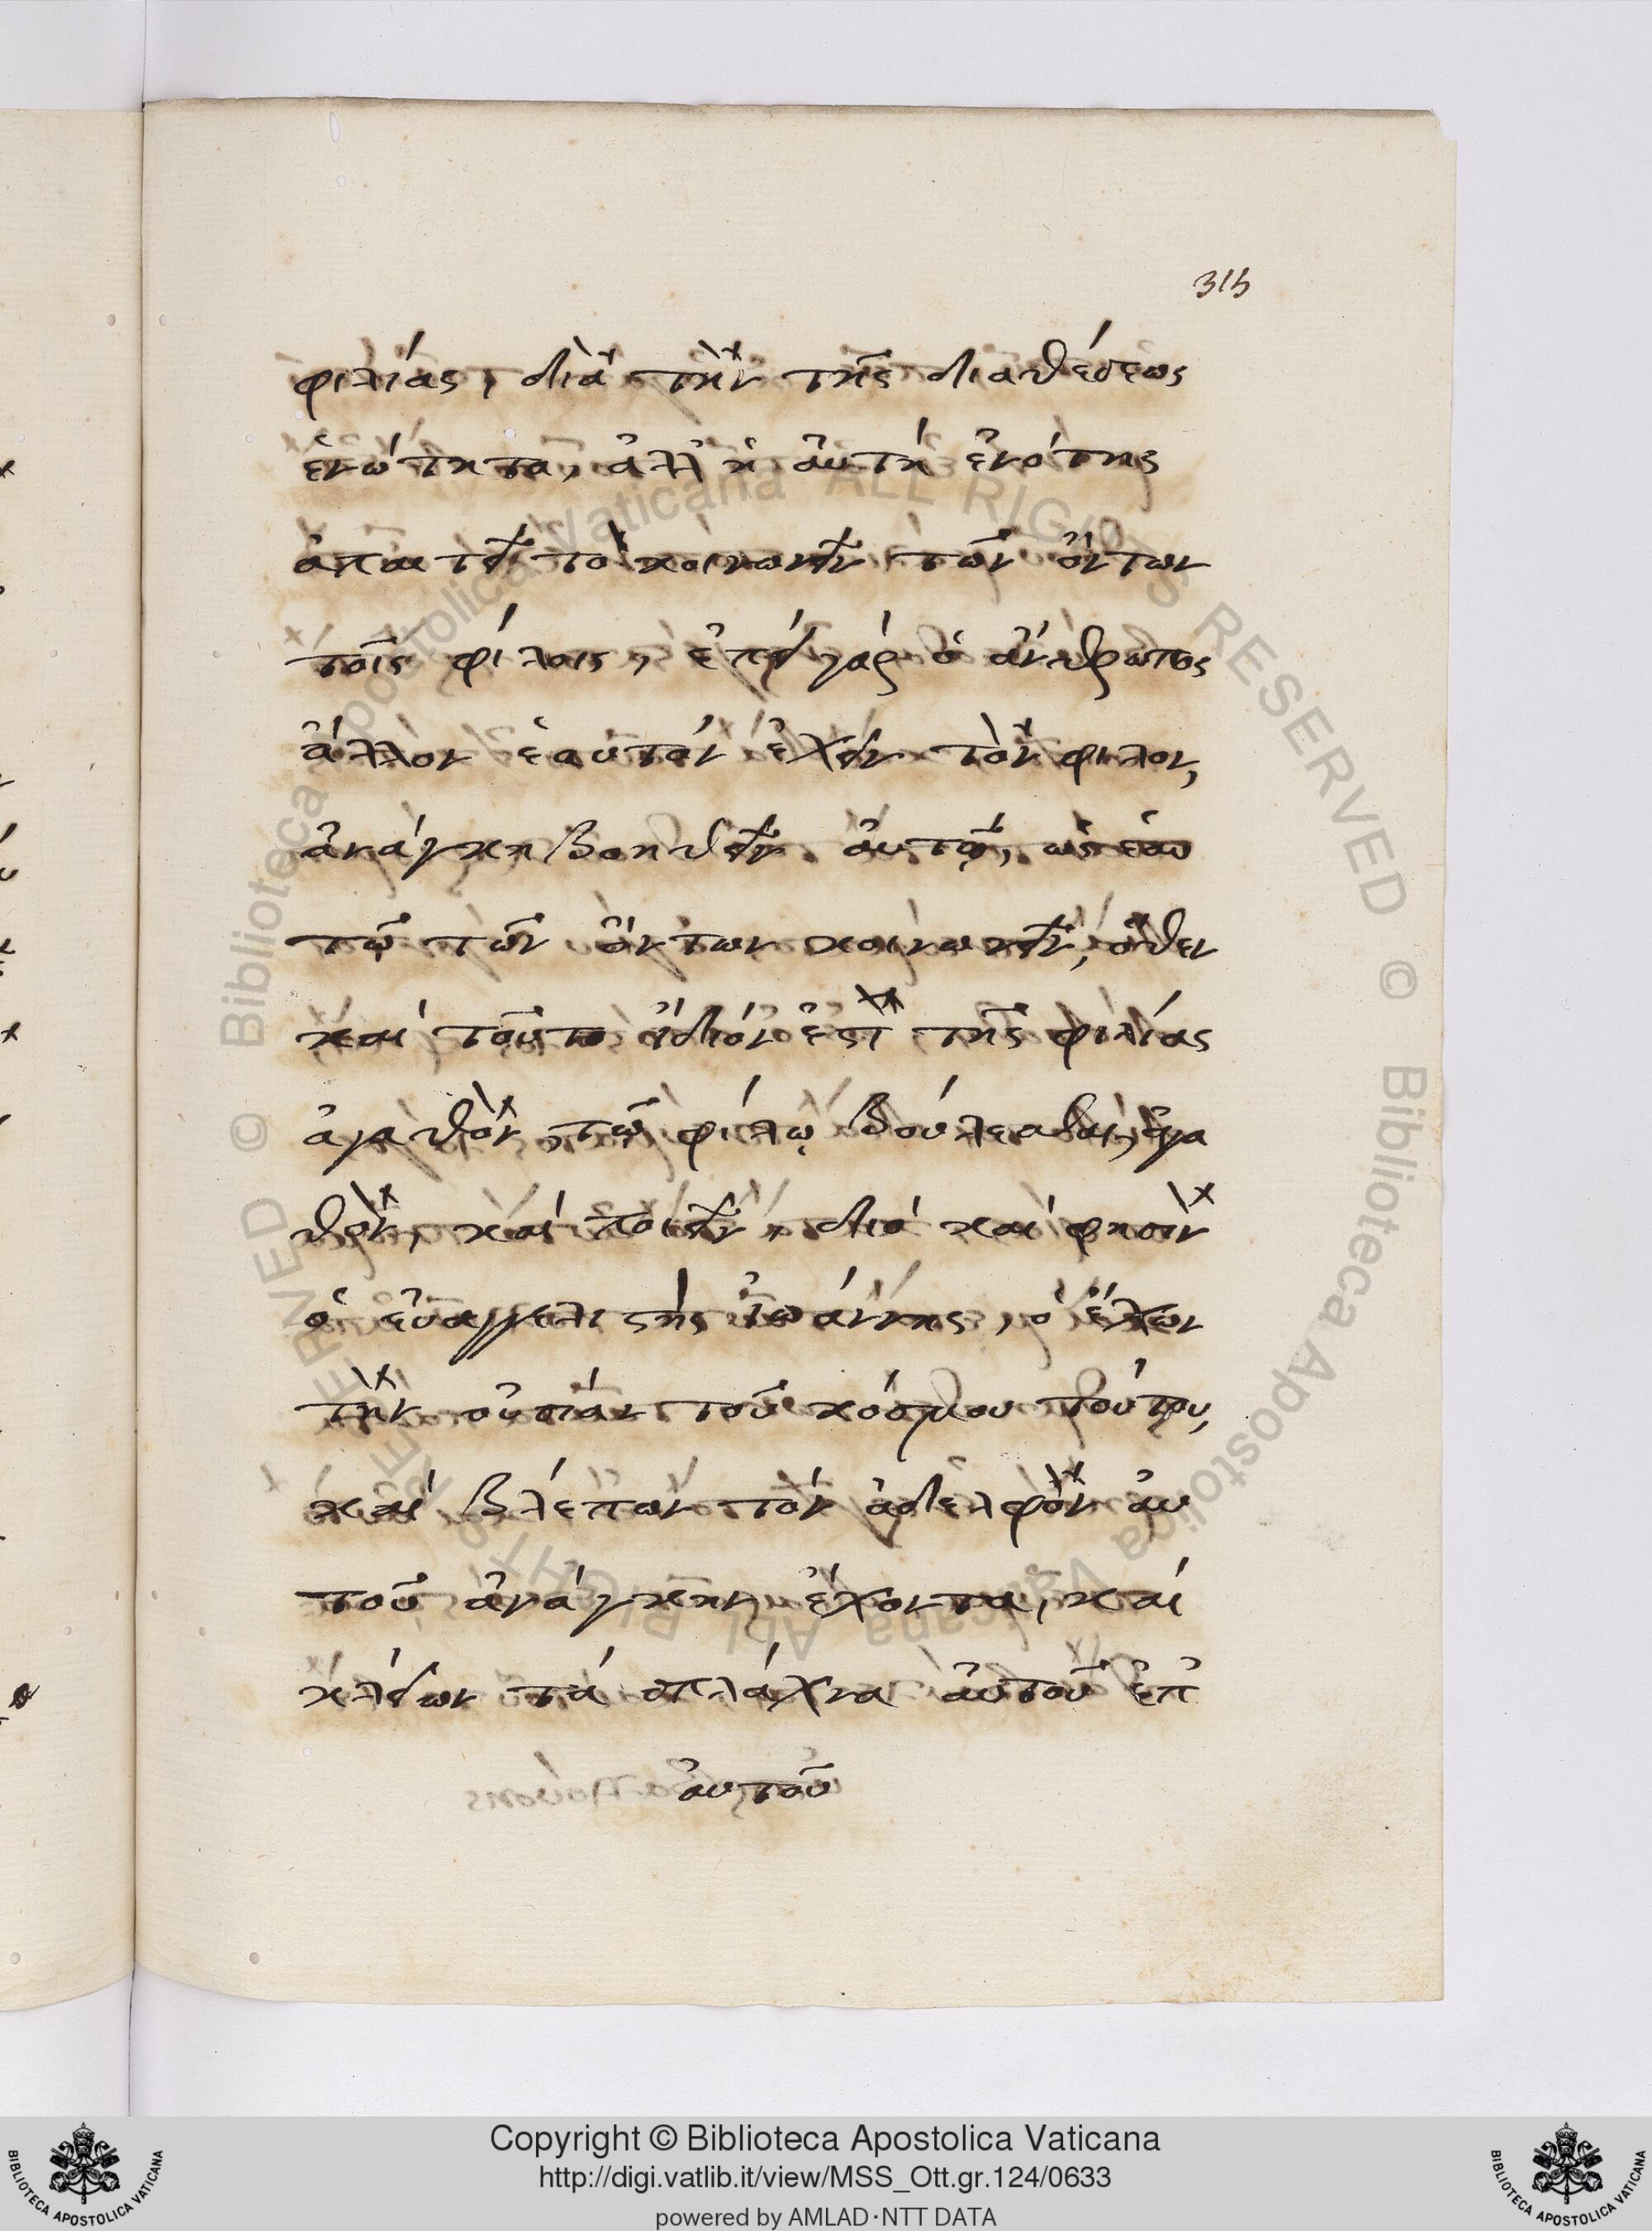 315
φιλίας, διὰ τὴν τῆς διαθέσεως
ἑνώτητα, ἀλλ ἡ ἀυτή ἑνότης
ἀπαιτεῖ τὸ κοινωνεῖν τῶν ὄντων
τοῖς φίλοις, ἐπεί γάρ ὁ ἄνθρωπος
ἄλλον ἑαυτόν ἔχει τὸν φιλον,
ἀνάγκη βοηθεῖν ἀυτῷ, ὡς ἑαυ
τῷ τῶν ὄντων κοινωνεῖν, ὅθεν
καί τοῦτο ἴδιόν ἐστὶ τῆς φιλίας
ἀγαθὸν τῶ φίλῳ βούλεσθαι, ἀγα
θὸν, καί ποιεῖν, διό καί φησὶν
ὁ ἐυαγγελιστής ἰωάννης, ὁ ἔχων
τὴν οὐσίαν τοῦ κόσμου τούτου,
καί βλέπων τόν ἀδελφὸν ἀυ
τοῦ ἀνάγκην ἔχοντα, καί
κλείων τά σπλάχνα ἀυτοῦ ἐπ
ἀυτοῦ
Biblioteca Apostolica Vaticana ALL RIGHTS RESERVED ©
Copyright © Biblioteca Apostolica Vaticana
http://digi.vatlib.it/view/MSS_Ott.gr.124/0633
powered by AMLAD·NTT DATA
BIBLIOTECA APOSTOLICA VATICANA
BIBLIOTECA APOSTOLICA VATICANA